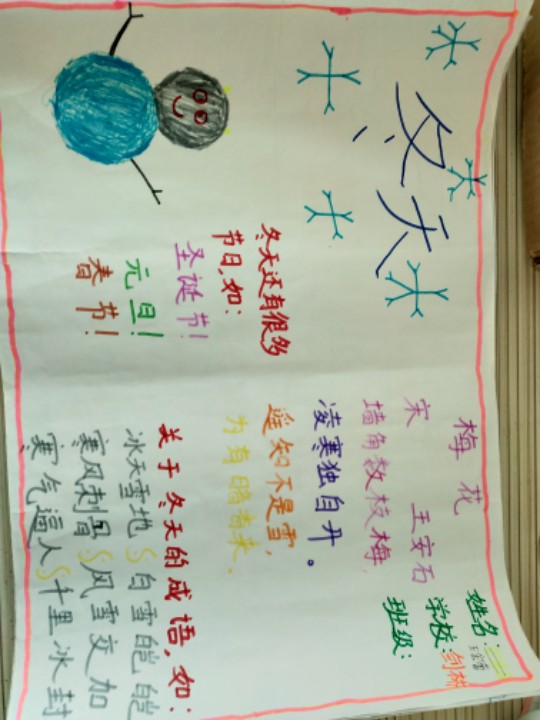 冬天
姓名:
学校:剑桥
班级:
冬天还有很多
节日,如:
圣诞节!
元旦!
春节!
梅花
宋 王安石
墙角数枝梅,
凌寒独自开。
遥知不是雪,
为有暗香来.
关于冬天的成语,如:
冰天雪地 白雪皑皑
寒风刺骨 风雪交加
寒气逼人 千里冰封